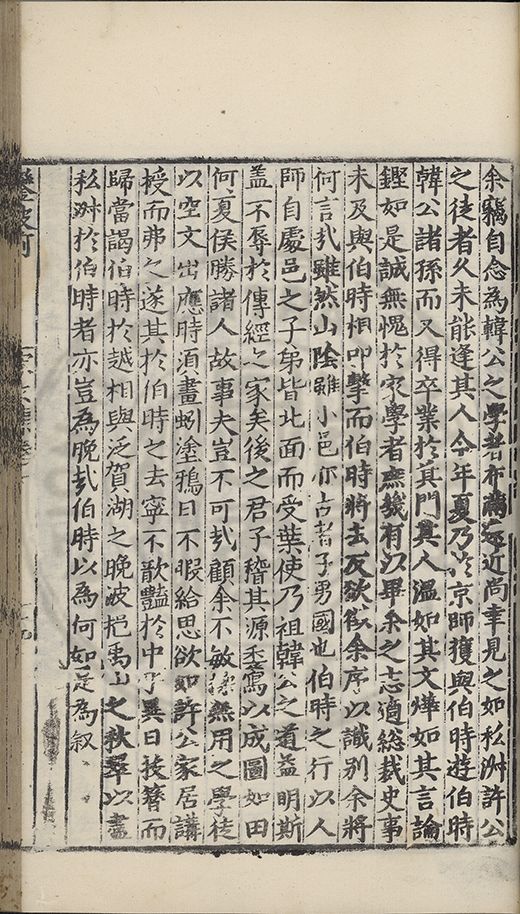 余竊自念為韓公之學者布滿遠近尚幸見之如私淑許公
之徒者久未能逢其人今年夏乃於京師獲與伯時遊伯時
韓公諸孫而又得卒業於其門其人溫如其文燁如其言論
鏗如是誠無愧於家學者庶幾有以畢余之志適総裁史事
未及與伯時相叩擊而伯時將去反欲徵余序以識別余將
何言㢤雖然山陰雖小邑亦古者子男國也伯時之行以人
師自處邑之子弟皆北面而受業使乃祖韓公之道益明斯
盖不辱於傳經之家矣後之君子稽其源委寫以成圖如田
何夏侯勝諸人故事夫豈不可㢤顧余不敏操無用之學徒
以空文出應時須畫蚓塗鴉日不暇給思欲如許公家居講
授而弗之遂其於伯時之去寧不歆豔於中乎異日投簪而
歸當謁伯時於越相與泛賀湖之晚波挹禹山之秋翠以盡
私淑於伯時者亦豈為晚㢤伯時以為何如是為叙